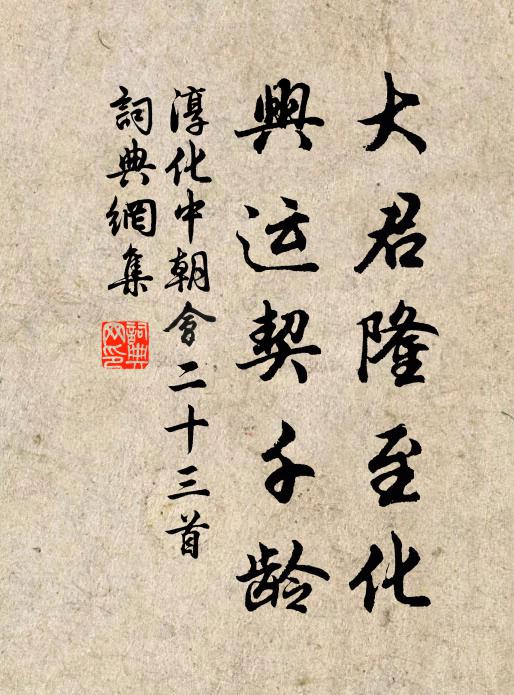 大君隆至化
興运契千龄
淳化中朝會二十三首
詞典網集
詞典網印